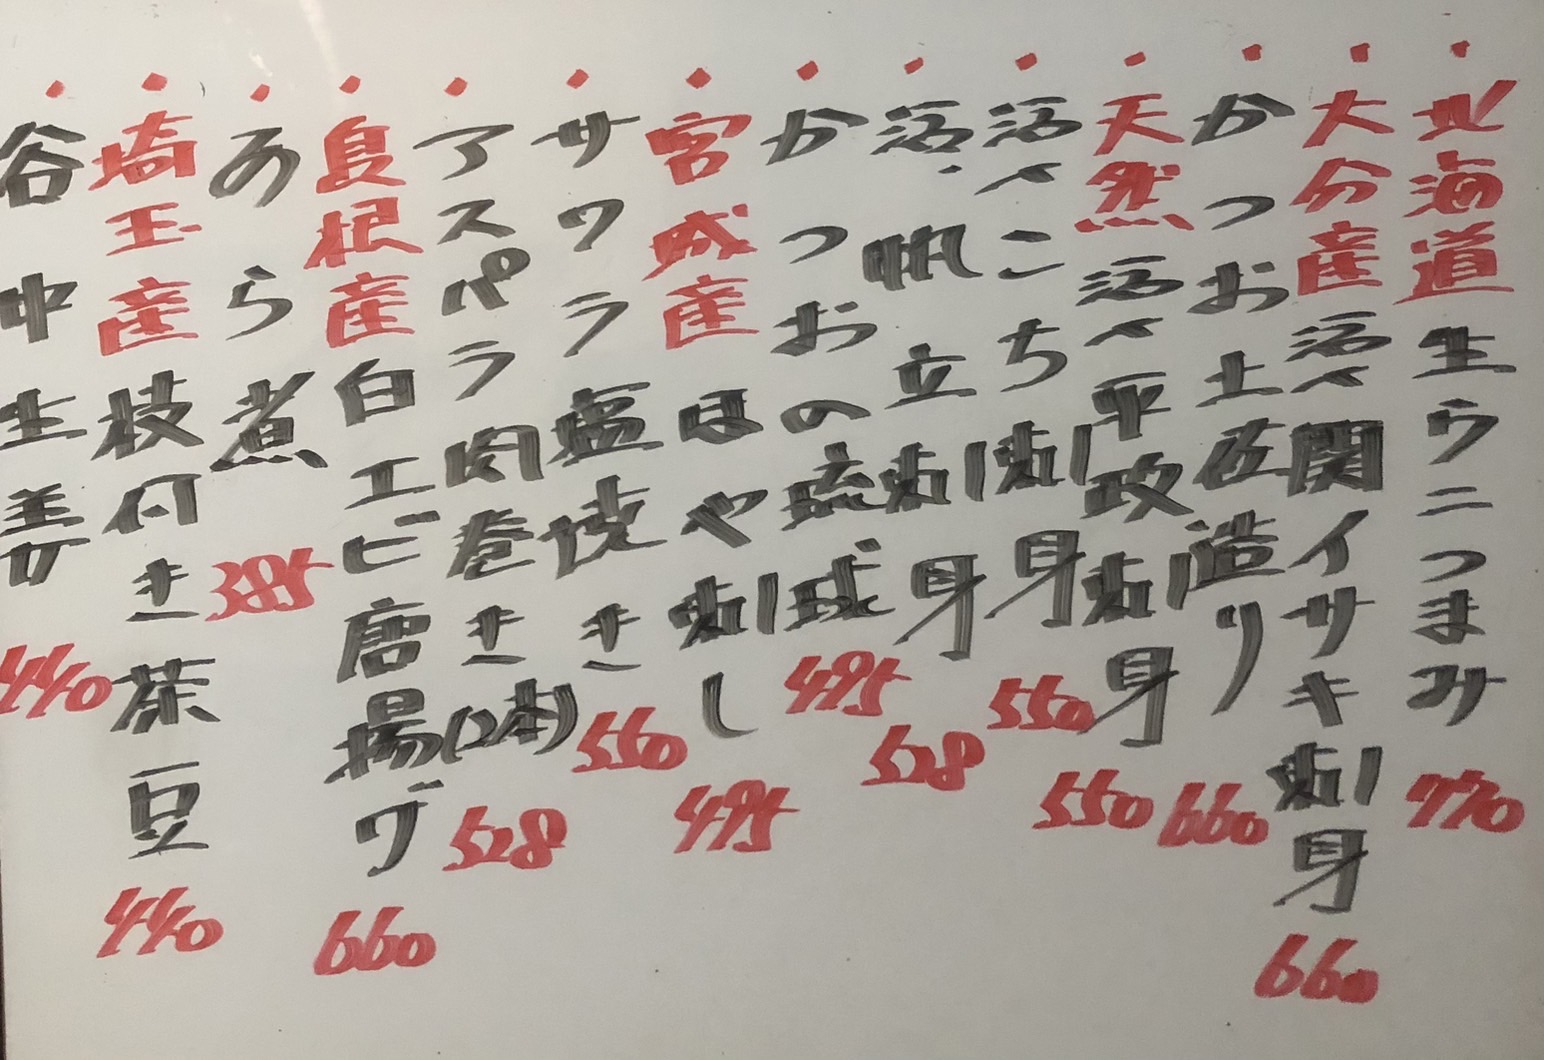 ・北海道生ウニつまみ 770
・大分産活〆関イサキ刺身 660
・かつお土佐造り 660
・天然活〆平政刺身 550
・活〆こち刺身 550
・活・帆立刺身 528
・かつおの琉球 495
・宮城産ほや刺し 495
・サワラ塩焼き 560
・アスパラ肉巻き(2本) 528
・島根産白エビ唐揚げ 660
・あら煮 385
・埼玉産枝付き茶豆 440
・谷中生姜 440